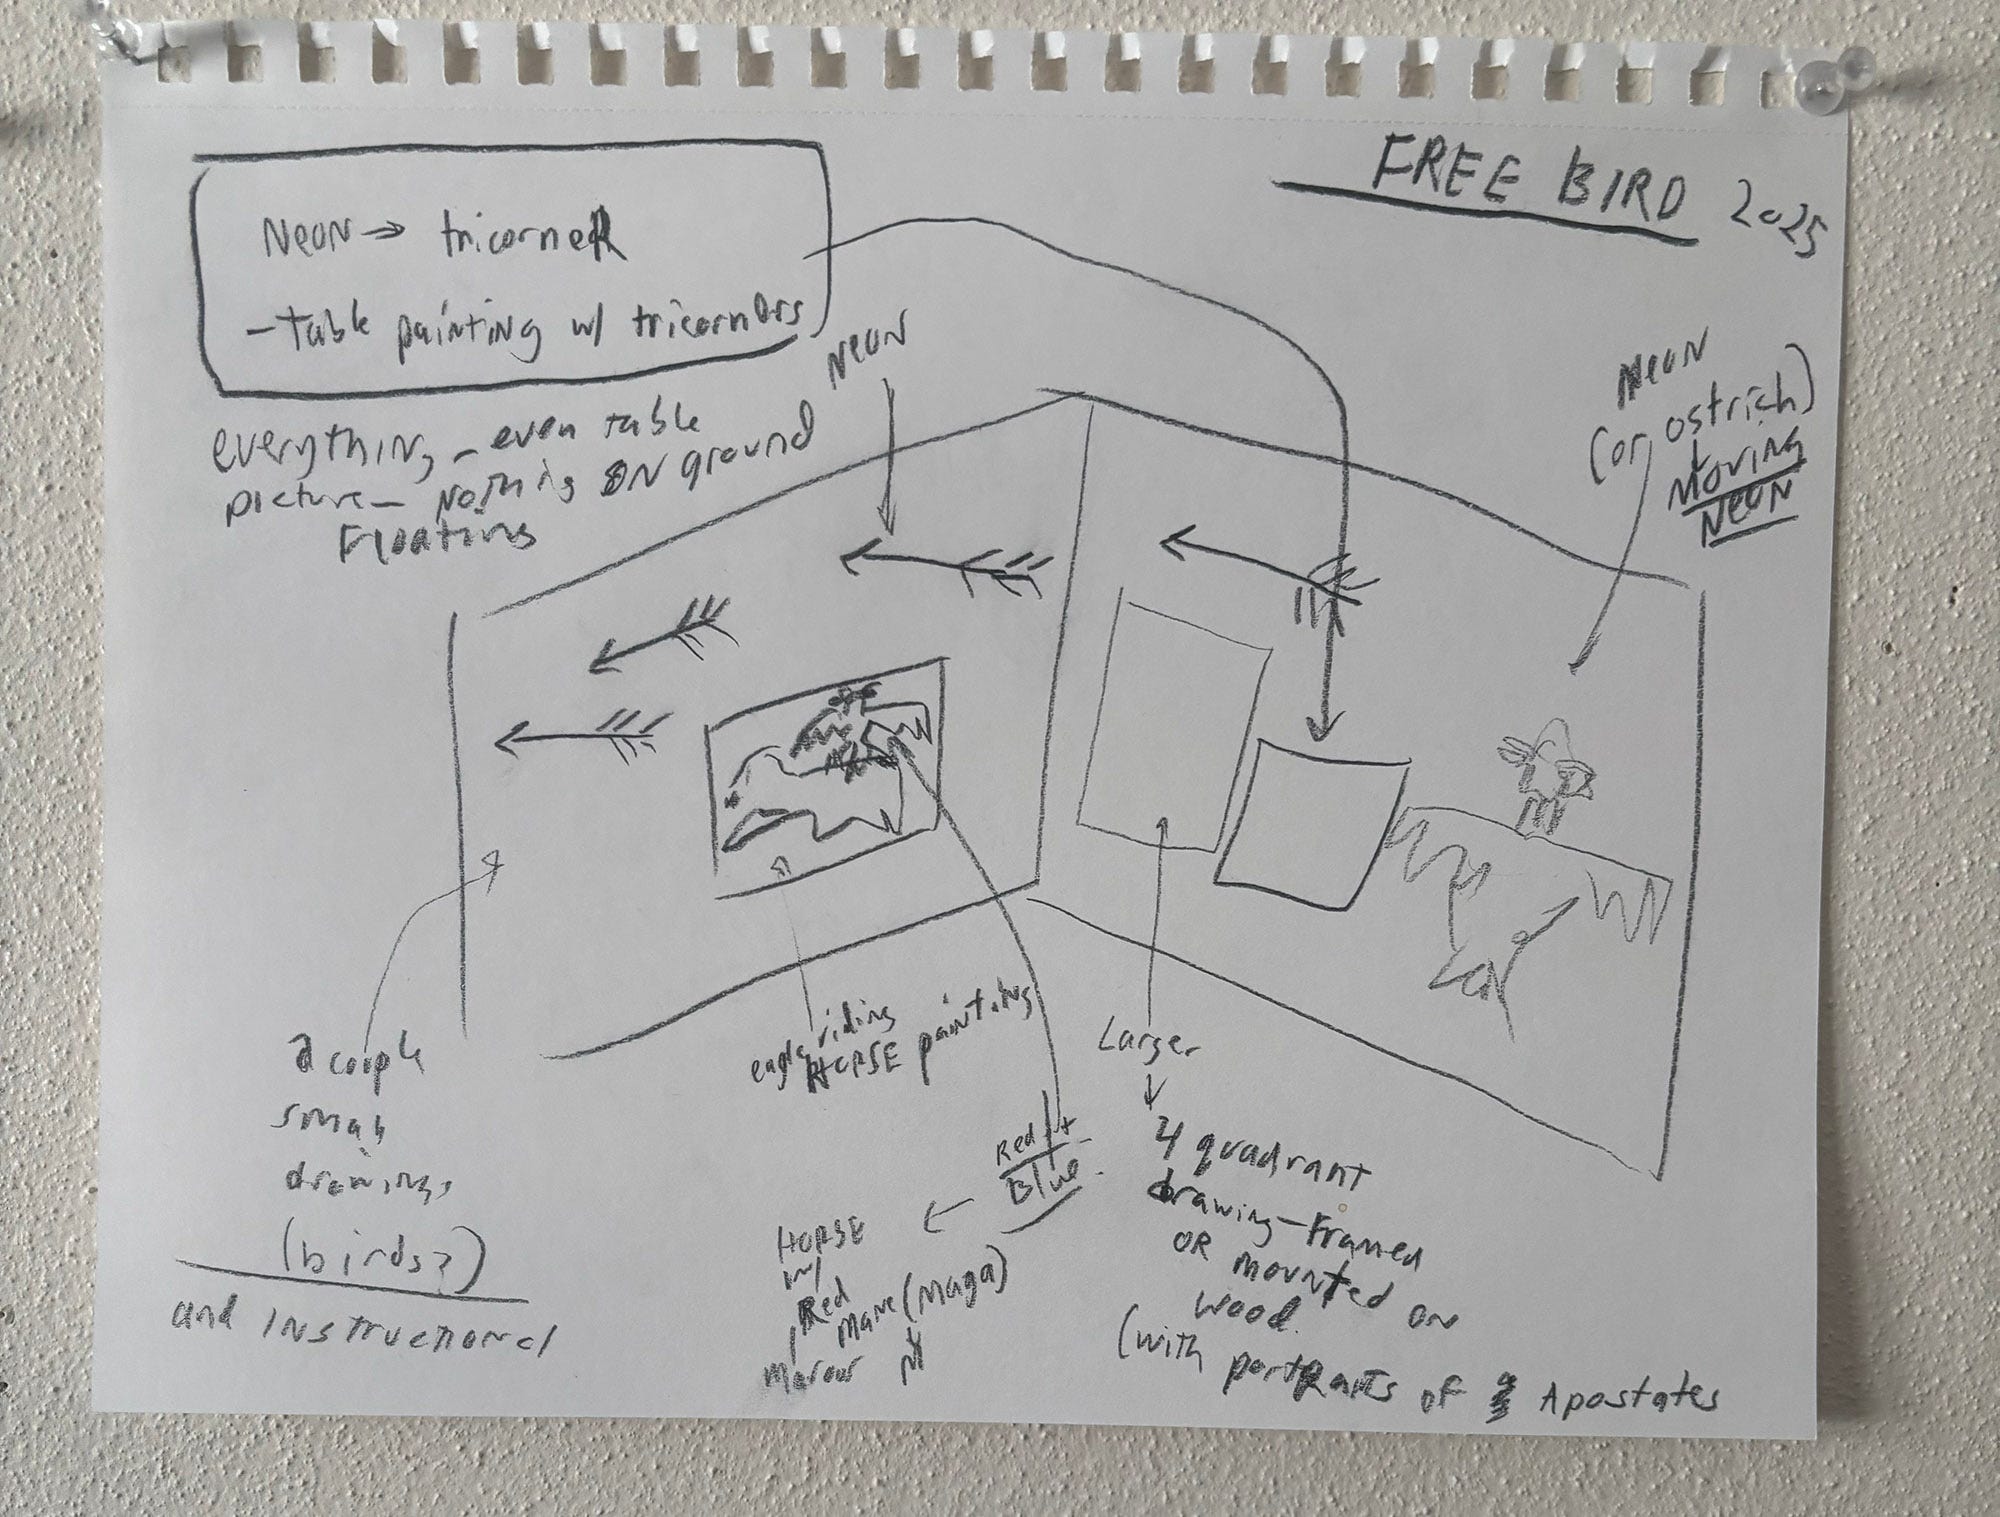 FREE BIRD 2025
NEON → tricorneR
- Table painting w/ tricorners
NEON
everything - even table
picture - Nothing ON ground
Floating
NEON
(or ostrich)
Moving
NEON
a couple
small
drawings
(birds?)
and instructional
eagle riding
HORSE painting
Red +
Blue
HORSE
w/
Red
Mane (Maga)
Larger
4 quadrant
drawing - Framed
OR mounted on
wood.
(with portRaits of Apostates